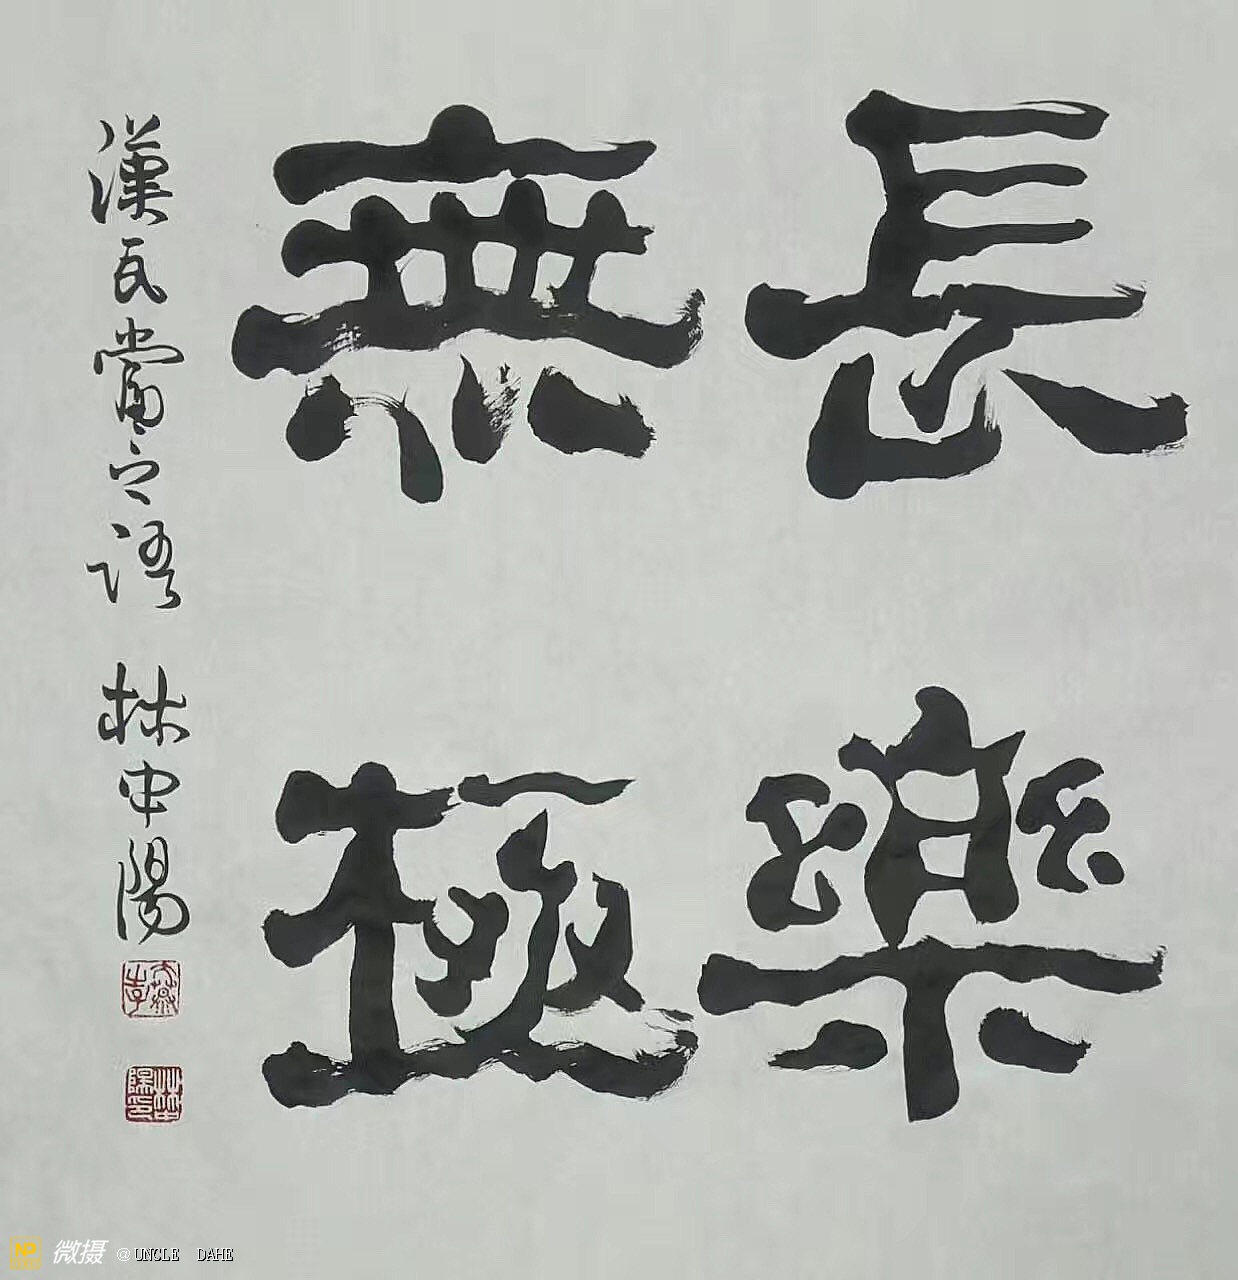 長樂
無極
漢瓦當之語 林中陽
微摄 @UNCLE DAHE